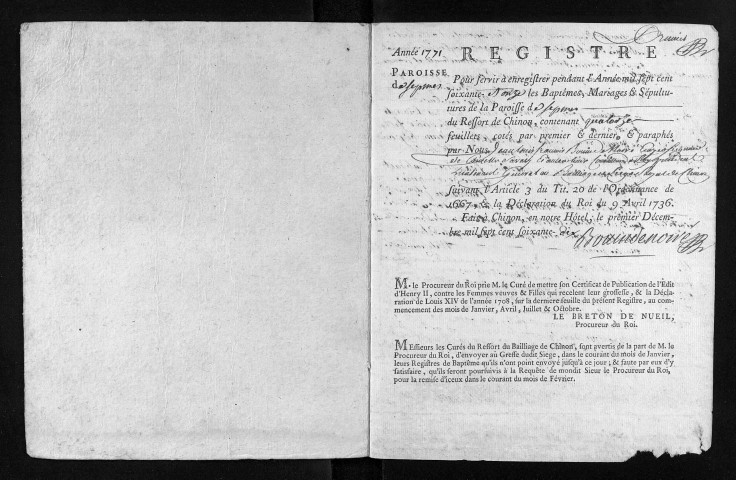 Année 1771.
REGISTRE
PAROISSE
de sepmes
Pour servir à enregistrer pendant l'Année mil sept cent
soixante-Onze les Baptêmes, Mariages & Sépultu-
tures de la Paroisse de sepmes
du Ressort de Chinon, contenant quatorze
feuillets, cotés par premier & dernier, & paraphés
par Nous
suivant l'Article 3 du Tit. 20 de l'Ordonnance de
1667, & la Déclaration du Roi du 9 Avril 1736.
Fait à Chinon, en notre Hôtel, le premier Décem-
bre mil sept cent soixante-dix
M. le Procureur du Roi prie M. le Curé de mettre son Certificat de Publication de l'Edit
d'Henry II, contre les Femmes veuves & Filles qui recelent leur grossesse, & la Décla-
ration de Louis XIV de l'année 1708, sur la derniere feuille du présent Registre, au com-
mencement des mois de Janvier, Avril, Juillet & Octobre.
LE BRETON DE NUEIL,
Procureur du Roi.
Messieurs les Curés du Ressort du Bailliage de Chinon, sont avertis de la part de M. le
Procureur du Roi, d'envoyer au Greffe dudit Siege, dans le courant du mois de Janvier,
leurs Registres de Baptême qu'ils n'ont point envoyé jusqu'à ce jour; & faute par eux d'y
satisfaire, qu'ils seront poursuivis à la Requête de mondit Sieur le Procureur du Roi,
pour la remise d'iceux dans le courant du mois de Février.